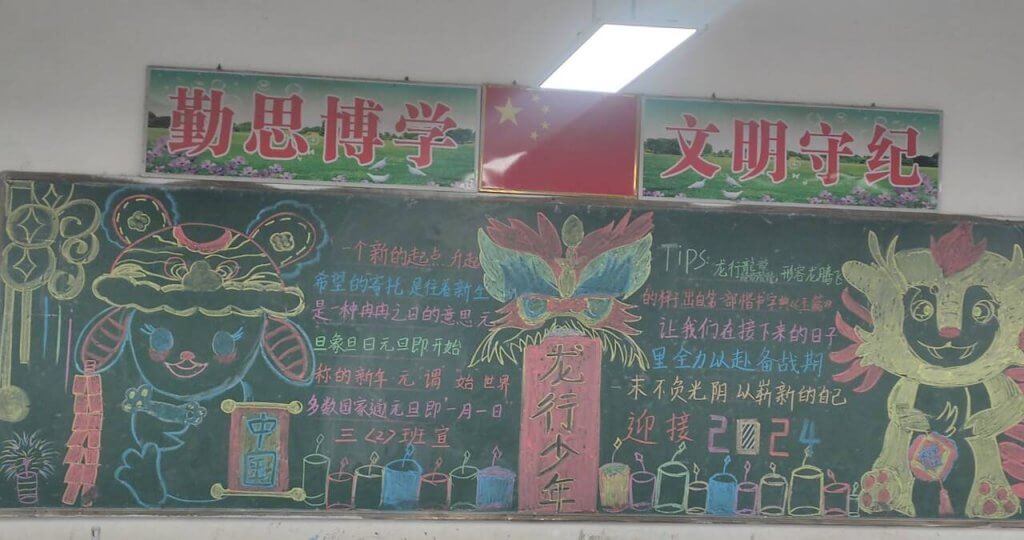 勤思博学
文明守纪
一个新的起点.升起
希望的寄托.是往着新生
是一种冉冉之日的意思元
旦象旦日元旦即开始
称的新年 元"谓"始"世界
多数国家通元旦即"一月一日"
三〈2〉班 宣
中国
龙行少年
TiPS:龙行 形容龙腾飞
的样
让我们在接下来的日子
里全力以赴备战期
末 不负光阴 以崭新的自己
迎接2024